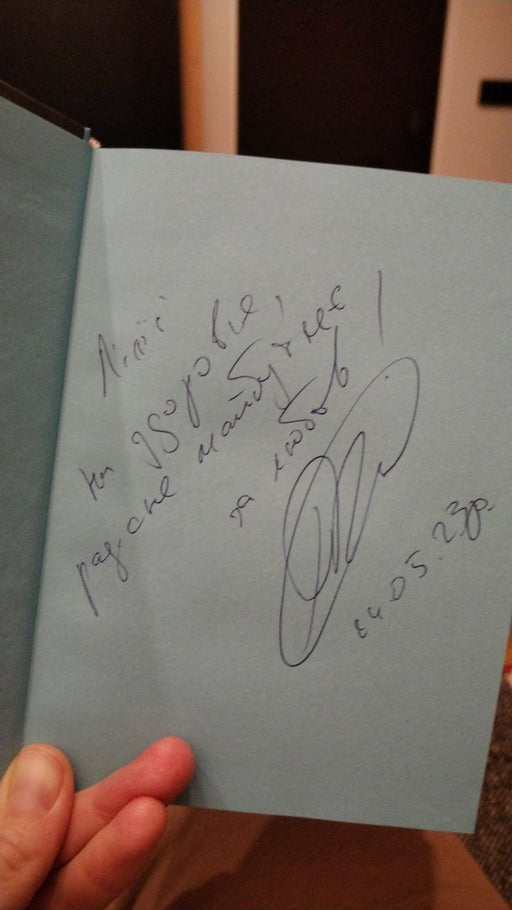 Лілії
на здоров'є,
радісне майбутнє
та любов!
14.05.23р.